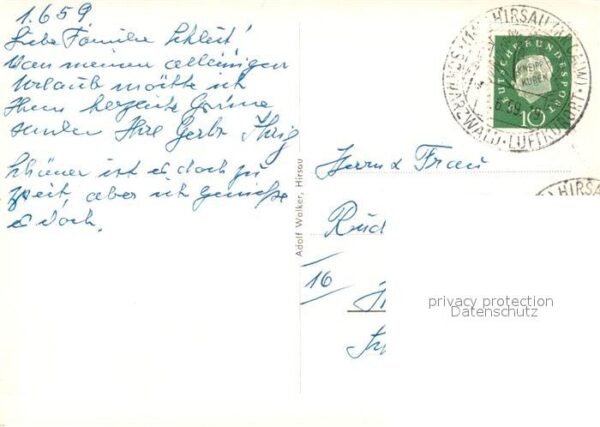 1.6.59
Liebe Familie Schleit!
Von meinem alleinigen
Urlaub möchte ich
Ihnen herzliche Grüße
senden Ihre Gerbr.
Schöner ist es doch zu
zweit, aber ich genieße
es doch.
Adolf Wolker, Hirsau
Herrn & Frau
Rud
16
HIRSAU
SCHWARZWALD-LUFTKURORT
DEUTSCHE BUNDESPOST
10
HIRSAU
privacy protection
Datenschutz